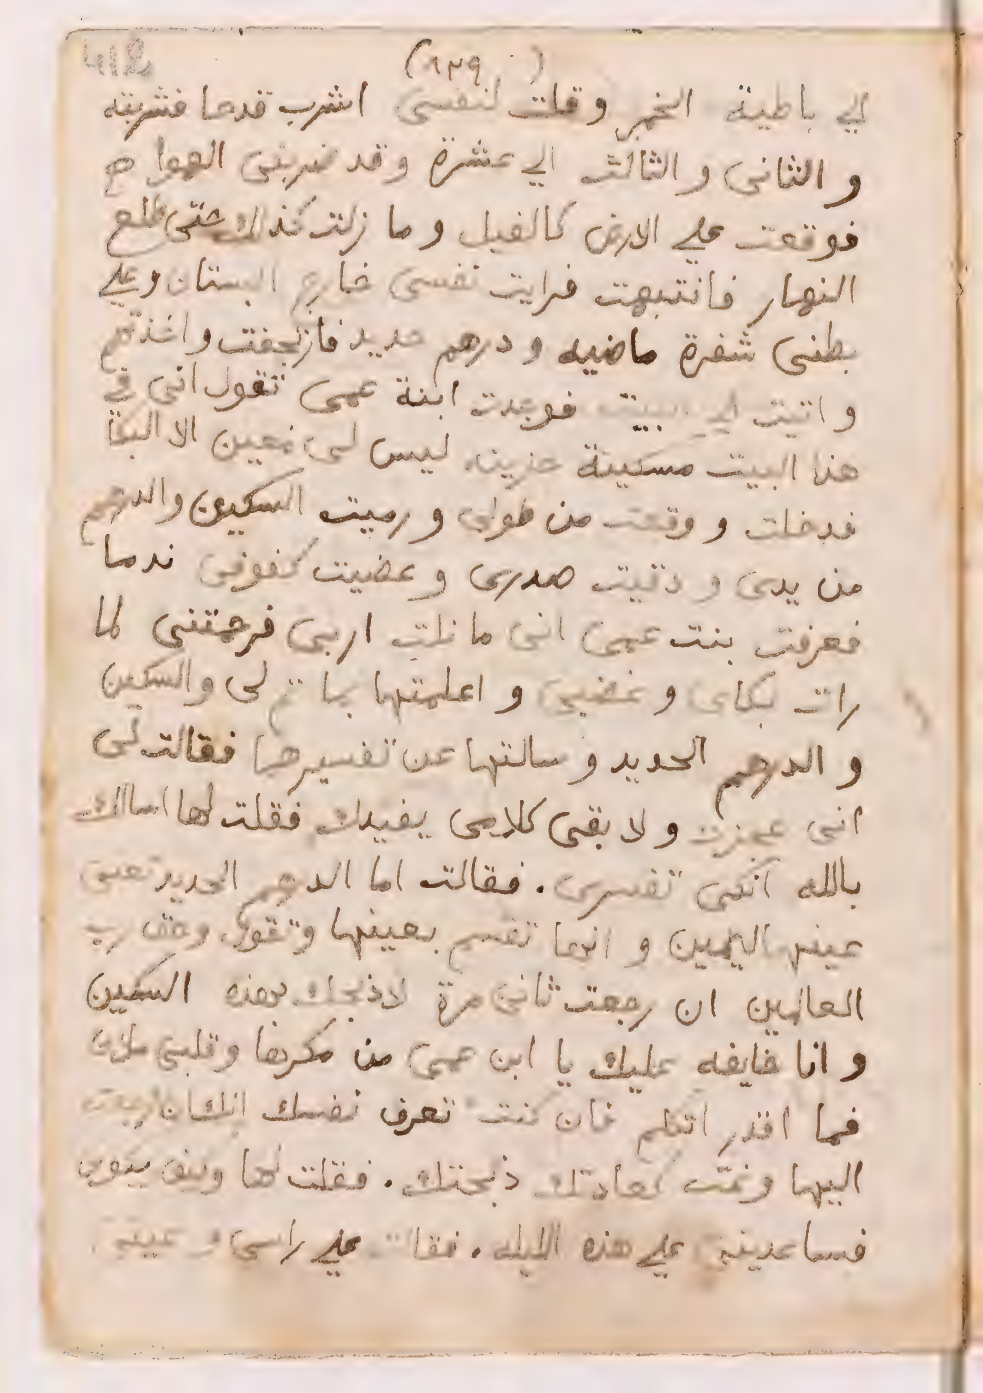 (٨٣٩)
الي باطية الخمر وقلت لنفسى اشرب قدحا فشربته
و الثانى و الثالث الي عشرة وقد ضربنى الهوا
فوقعت علي الارض كالفيل و ما زلت كذلك حتى طلع
النهار فانتبهت فرايت نفسى خارج البستان وعلي
بطنى شفرة ماضيه و درهم حديد فارتجفت واخذتهم
و اتيت الي البيت فوجدت ابنة عمى تقول انى في
هذا البيت مسكينة حزينه ليس لى معين الا البكا
فدخلت و وقعت من طولى و رميت السكين والدرهم
من يدى و دقيت صدرى و عضيت كفوفى ندما
فعرفت بنت عمى انى ما نلت اربى فرحمتنى لما
رات بكاى و غضبى و اعلمتها بما تم لى والسكين
و الدرهم الحديد و سالتها عن تفسيرها فقالت لى
انى عجزت و لا بقى كلامى يفيدك فقلت لها اسالك
بالله انكى تفسرى . فقالت اما الدرهم الحديد تعنى
عينها اليمين و انها تقسم بعينها وتقول وحق رب
العالمين ان رجعت ثانى مرة لاذبحك بهذه السكين
و انا خايفه عليك يا ابن عمى من مكرها وقلبى ملان
فما اقدر اتكلم فان كنت تعرف نفسك انك ان رجعت
اليها و نمت كعادتك ذبحتك . فقلت لها وكيف يكون
فساعدينى علي هذه الليله . فقالت علي راسى و عينى .